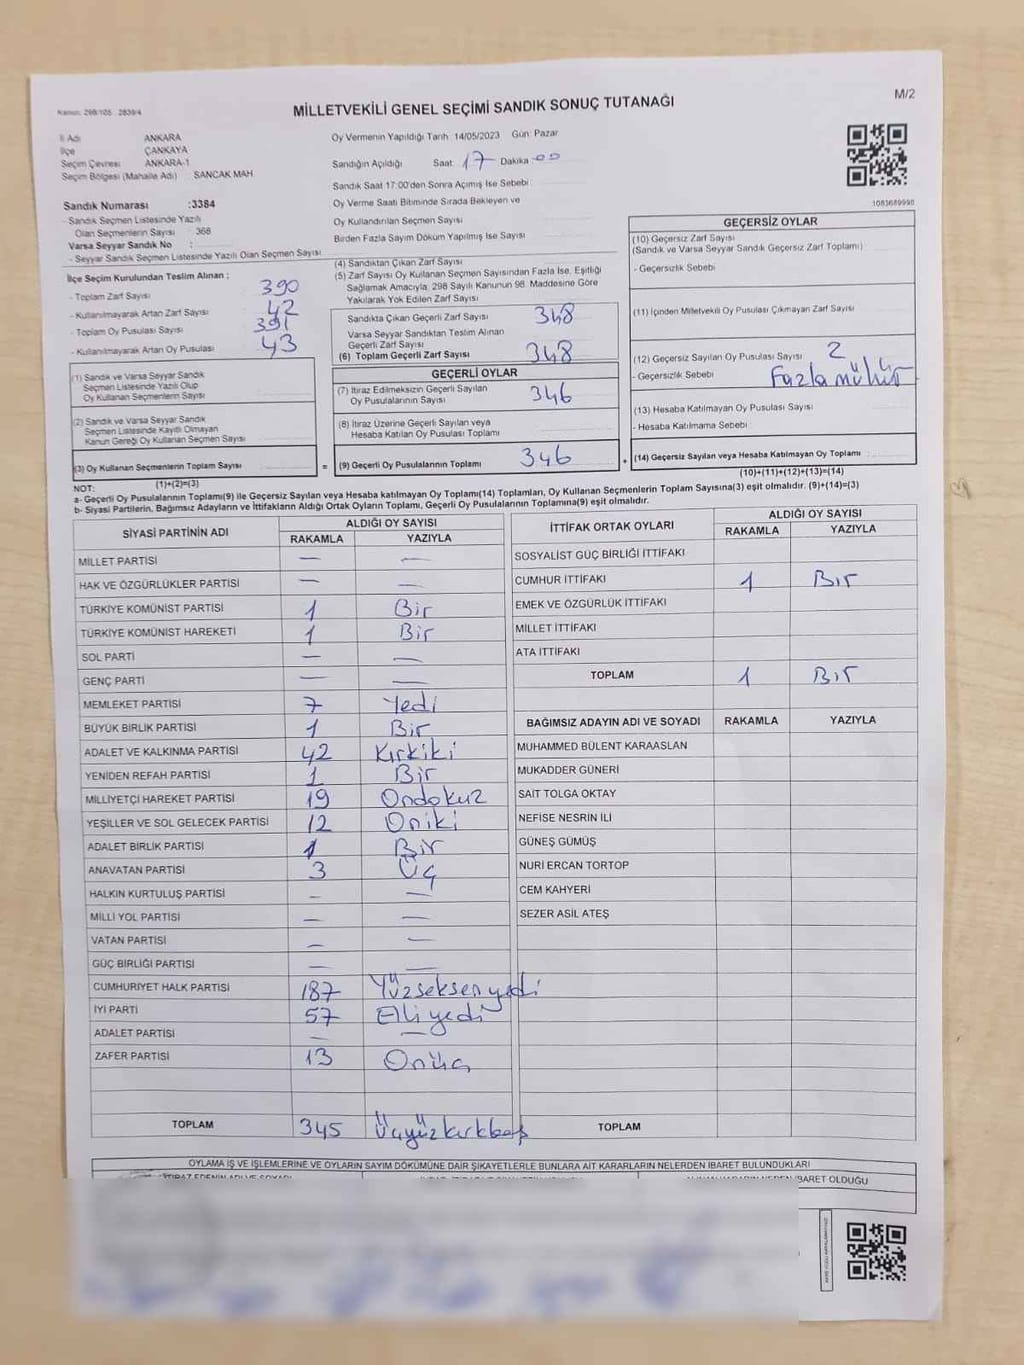 Kanun: 298/105 . 2839/4
MİLLETVEKİLİ GENEL SEÇİMİ SANDIK SONUÇ TUTANAĞI
M/2
İl Adı ANKARA
İlçe ÇANKAYA
Seçim Çevresi ANKARA-1
Seçim Bölgesi (Mahalle Adı) SANCAK MAH
Sandık Numarası :3384
- Sandık Seçmen Listesinde Yazılı
Olan Seçmenlerin Sayısı : 368
Varsa Seyyar Sandık No :
- Seyyar Sandık Seçmen Listesinde Yazılı Olan Seçmen Sayısı
Oy Vermenin Yapıldığı Tarih 14/05/2023 Gün: Pazar
Sandığın Açıldığı Saat: 17 Dakika 00
Sandık Saat 17:00'den Sonra Açımış İse Sebebi :
Oy Verme Saati Bitiminde Sırada Bekleyen ve
Oy Kullandırılan Seçmen Sayısı
Birden Fazla Sayım Döküm Yapılmış İse Sayısı
1083689998
İlçe Seçim Kurulundan Teslim Alınan :
- Toplam Zarf Sayısı 390
- Kullanılmayarak Artan Zarf Sayısı 42
- Toplam Oy Pusulası Sayısı 391
- Kullanılmayarak Artan Oy Pusulası 43
(1) Sandık ve Varsa Seyyar Sandık
Seçmen Listesinde Yazılı Olup
Oy Kullanan Seçmenlerin Sayısı
(2) Sandık ve Varsa Seyyar Sandık
Seçmen Listesinde Kayıtlı Olmayan
Kanun Gereği Oy Kullanan Seçmen Sayısı
(3) Oy Kullanan Seçmenlerin Toplam Sayısı =
(1)+(2)=(3)
(4) Sandıktan Çıkan Zarf Sayısı
(5) Zarf Sayısı Oy Kullanan Seçmen Sayısından Fazla İse, Eşitliği
Sağlamak Amacıyla, 298 Sayılı Kanunun 98. Maddesine Göre
Yakılarak Yok Edilen Zarf Sayısı
Sandıkta Çıkan Geçerli Zarf Sayısı 348
Varsa Seyyar Sandıktan Teslim Alınan
Geçerli Zarf Sayısı
(6) Toplam Geçerli Zarf Sayısı 348
GEÇERLİ OYLAR
(7) İtiraz Edilmeksizin Geçerli Sayılan
Oy Pusulalarının Sayısı 346
(8) İtiraz Üzerine Geçerli Sayılan veya
Hesaba Katılan Oy Pusulası Toplamı
(9) Geçerli Oy Pusulalarının Toplamı 346 +
GEÇERSİZ OYLAR
(10) Geçersiz Zarf Sayısı
(Sandık ve Varsa Seyyar Sandık Geçersiz Zarf Toplamı)
- Geçersizlik Sebebi
(11) İçinden Milletvekili Oy Pusulası Çıkmayan Zarf Sayısı
(12) Geçersiz Sayılan Oy Pusulası Sayısı 2
- Geçersizlik Sebebi Fazla mühür
(13) Hesaba Katılmayan Oy Pusulası Sayısı
- Hesaba Katılmama Sebebi
(14) Geçersiz Sayılan veya Hesaba Katılmayan Oy Toplamı :
(10)+(11)+(12)+(13)=(14)
NOT:
a- Geçerli Oy Pusulalarının Toplamı(9) ile Geçersiz Sayılan veya Hesaba katılmayan Oy Toplamı(14) Toplamları, Oy Kullanan Seçmenlerin Toplam Sayısına(3) eşit olmalıdır. (9)+(14)=(3)
b- Siyasi Partilerin, Bağımsız Adayların ve İttifakların Aldığı Ortak Oyların Toplamı, Geçerli Oy Pusulalarının Toplamına(9) eşit olmalıdır.
SİYASİ PARTİNİN ADI ALDIĞI OY SAYISI
RAKAMLA YAZIYLA
MİLLET PARTİSİ — —
HAK VE ÖZGÜRLÜKLER PARTİSİ — —
TÜRKİYE KOMÜNİST PARTİSİ 1 Bir
TÜRKİYE KOMÜNİST HAREKETİ 1 Bir
SOL PARTİ — —
GENÇ PARTİ — —
MEMLEKET PARTİSİ 7 Yedi
BÜYÜK BİRLİK PARTİSİ 1 Bir
ADALET VE KALKINMA PARTİSİ 42 Kırkiki
YENİDEN REFAH PARTİSİ 1 Bir
MİLLİYETÇİ HAREKET PARTİSİ 19 Ondokuz
YEŞİLLER VE SOL GELECEK PARTİSİ 12 Oniki
ADALET BİRLİK PARTİSİ 1 Bir
ANAVATAN PARTİSİ 3 Üç
HALKIN KURTULUŞ PARTİSİ — —
MİLLİ YOL PARTİSİ — —
VATAN PARTİSİ — —
GÜÇ BİRLİĞİ PARTİSİ — —
CUMHURİYET HALK PARTİSİ 187 Yüzseksenyedi
İYİ PARTİ 57 Elliyedi
ADALET PARTİSİ — —
ZAFER PARTİSİ 13 Onüç
TOPLAM 345 Üçyüzkırkbeş
İTTİFAK ORTAK OYLARI ALDIĞI OY SAYISI
RAKAMLA YAZIYLA
SOSYALİST GÜÇ BİRLİĞİ İTTİFAKI
CUMHUR İTTİFAKI 1 Bir
EMEK VE ÖZGÜRLÜK İTTİFAKI
MİLLET İTTİFAKI
ATA İTTİFAKI
TOPLAM 1 Bir
BAĞIMSIZ ADAYIN ADI VE SOYADI RAKAMLA YAZIYLA
MUHAMMED BÜLENT KARAASLAN
MUKADDER GÜNERİ
SAİT TOLGA OKTAY
NEFİSE NESRİN İLİ
GÜNEŞ GÜMÜŞ
NURİ ERCAN TORTOP
CEM KAHYERİ
SEZER ASİL ATEŞ
TOPLAM
OYLAMA İŞ VE İŞLEMLERİNE VE OYLARIN SAYIM DÖKÜMÜNE DAİR ŞİKAYETLERLE BUNLARA AİT KARARLARIN NELERDEN İBARET BULUNDUKLARI
İTİRAZ EDENİN ADI VE SOYADI
İBARET OLDUĞU